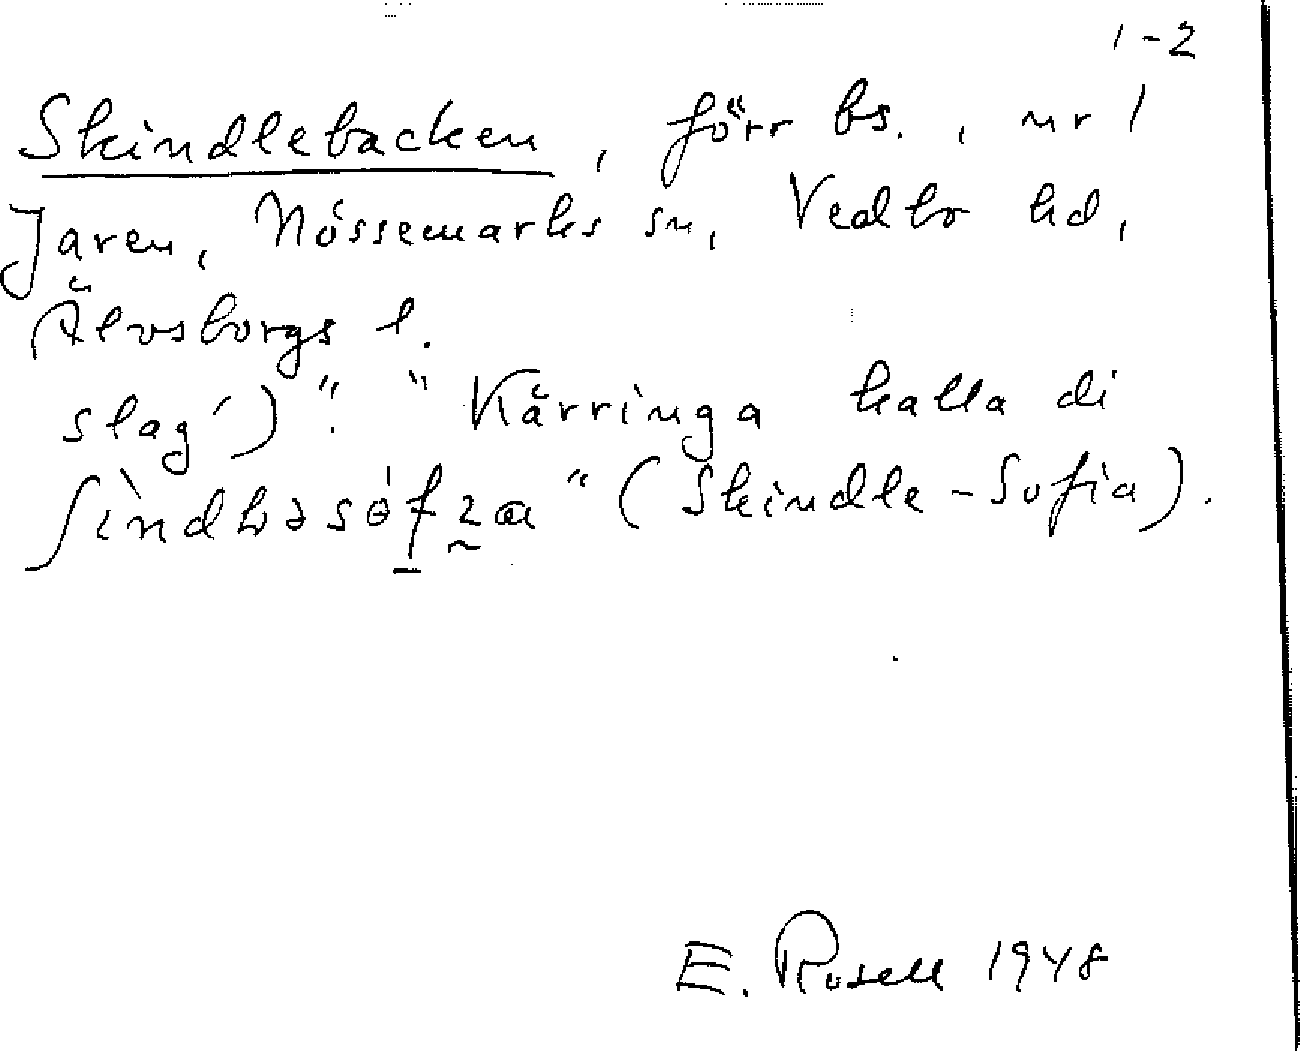 1-2
Skindlebacken, förr bs., nr 1
Jaren, Nössemarks sn, Vedbo hd,
Älvsborgs l.
slag')". "Kärringa kalla di
"(Skindle-Sofia).
E. Rosell 1948